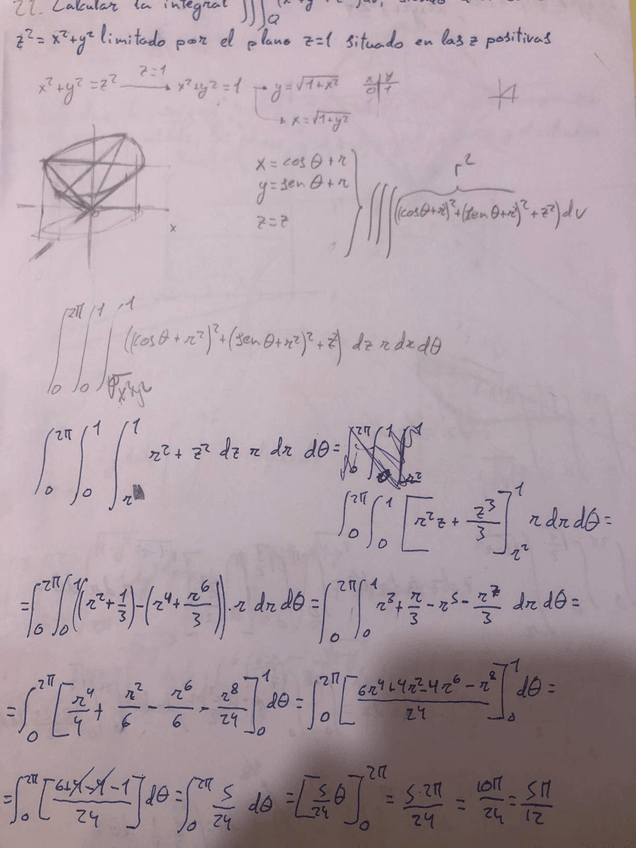 22. Calcular la integral ∭_Q (x²+y²+z²)dv, siendo Q el
z² = x²+y² limitado por el plano z=1 situado en las z positivas
x²+y² = z² —z=1→ x²+y²=1 → y = √(1+x²) x y 0 1
→ x = √(1+y²)
x = cosθ + r
y = senθ + r
z = z
r²
∭((cosθ+r)²+(senθ+r)²+z²)dv
x
∫₀^{2π} ∫₀^1 ∫_{√(x²+y²)}^1 ((cosθ+r²)²+(senθ+r²)²+z²) dz r dr dθ
∫₀^{2π} ∫₀^1 ∫_r^1 r²+z² dz r dr dθ =
∫₀^{2π} ∫₀^1 [r²z + z³/3]_{r²}^1 r dr dθ =
= ∫₀^{2π} ∫₀^1 ((r²+1/3)-(r⁴+r⁶/3)) · r dr dθ = ∫₀^{2π} ∫₀^1 r³ + r/3 - r⁵ - r⁷/3 dr dθ =
= ∫₀^{2π} [r⁴/4 + r²/6 - r⁶/6 - r⁸/24]₀^1 dθ = ∫₀^{2π} [(6r⁴+4r²-4r⁶-r⁸)/24]₀^1 dθ =
= ∫₀^{2π} [(6+4-4-1)/24] dθ = ∫₀^{2π} 5/24 dθ = [5/24 θ]₀^{2π} = 5·2π/24 = 10π/24 = 5π/12